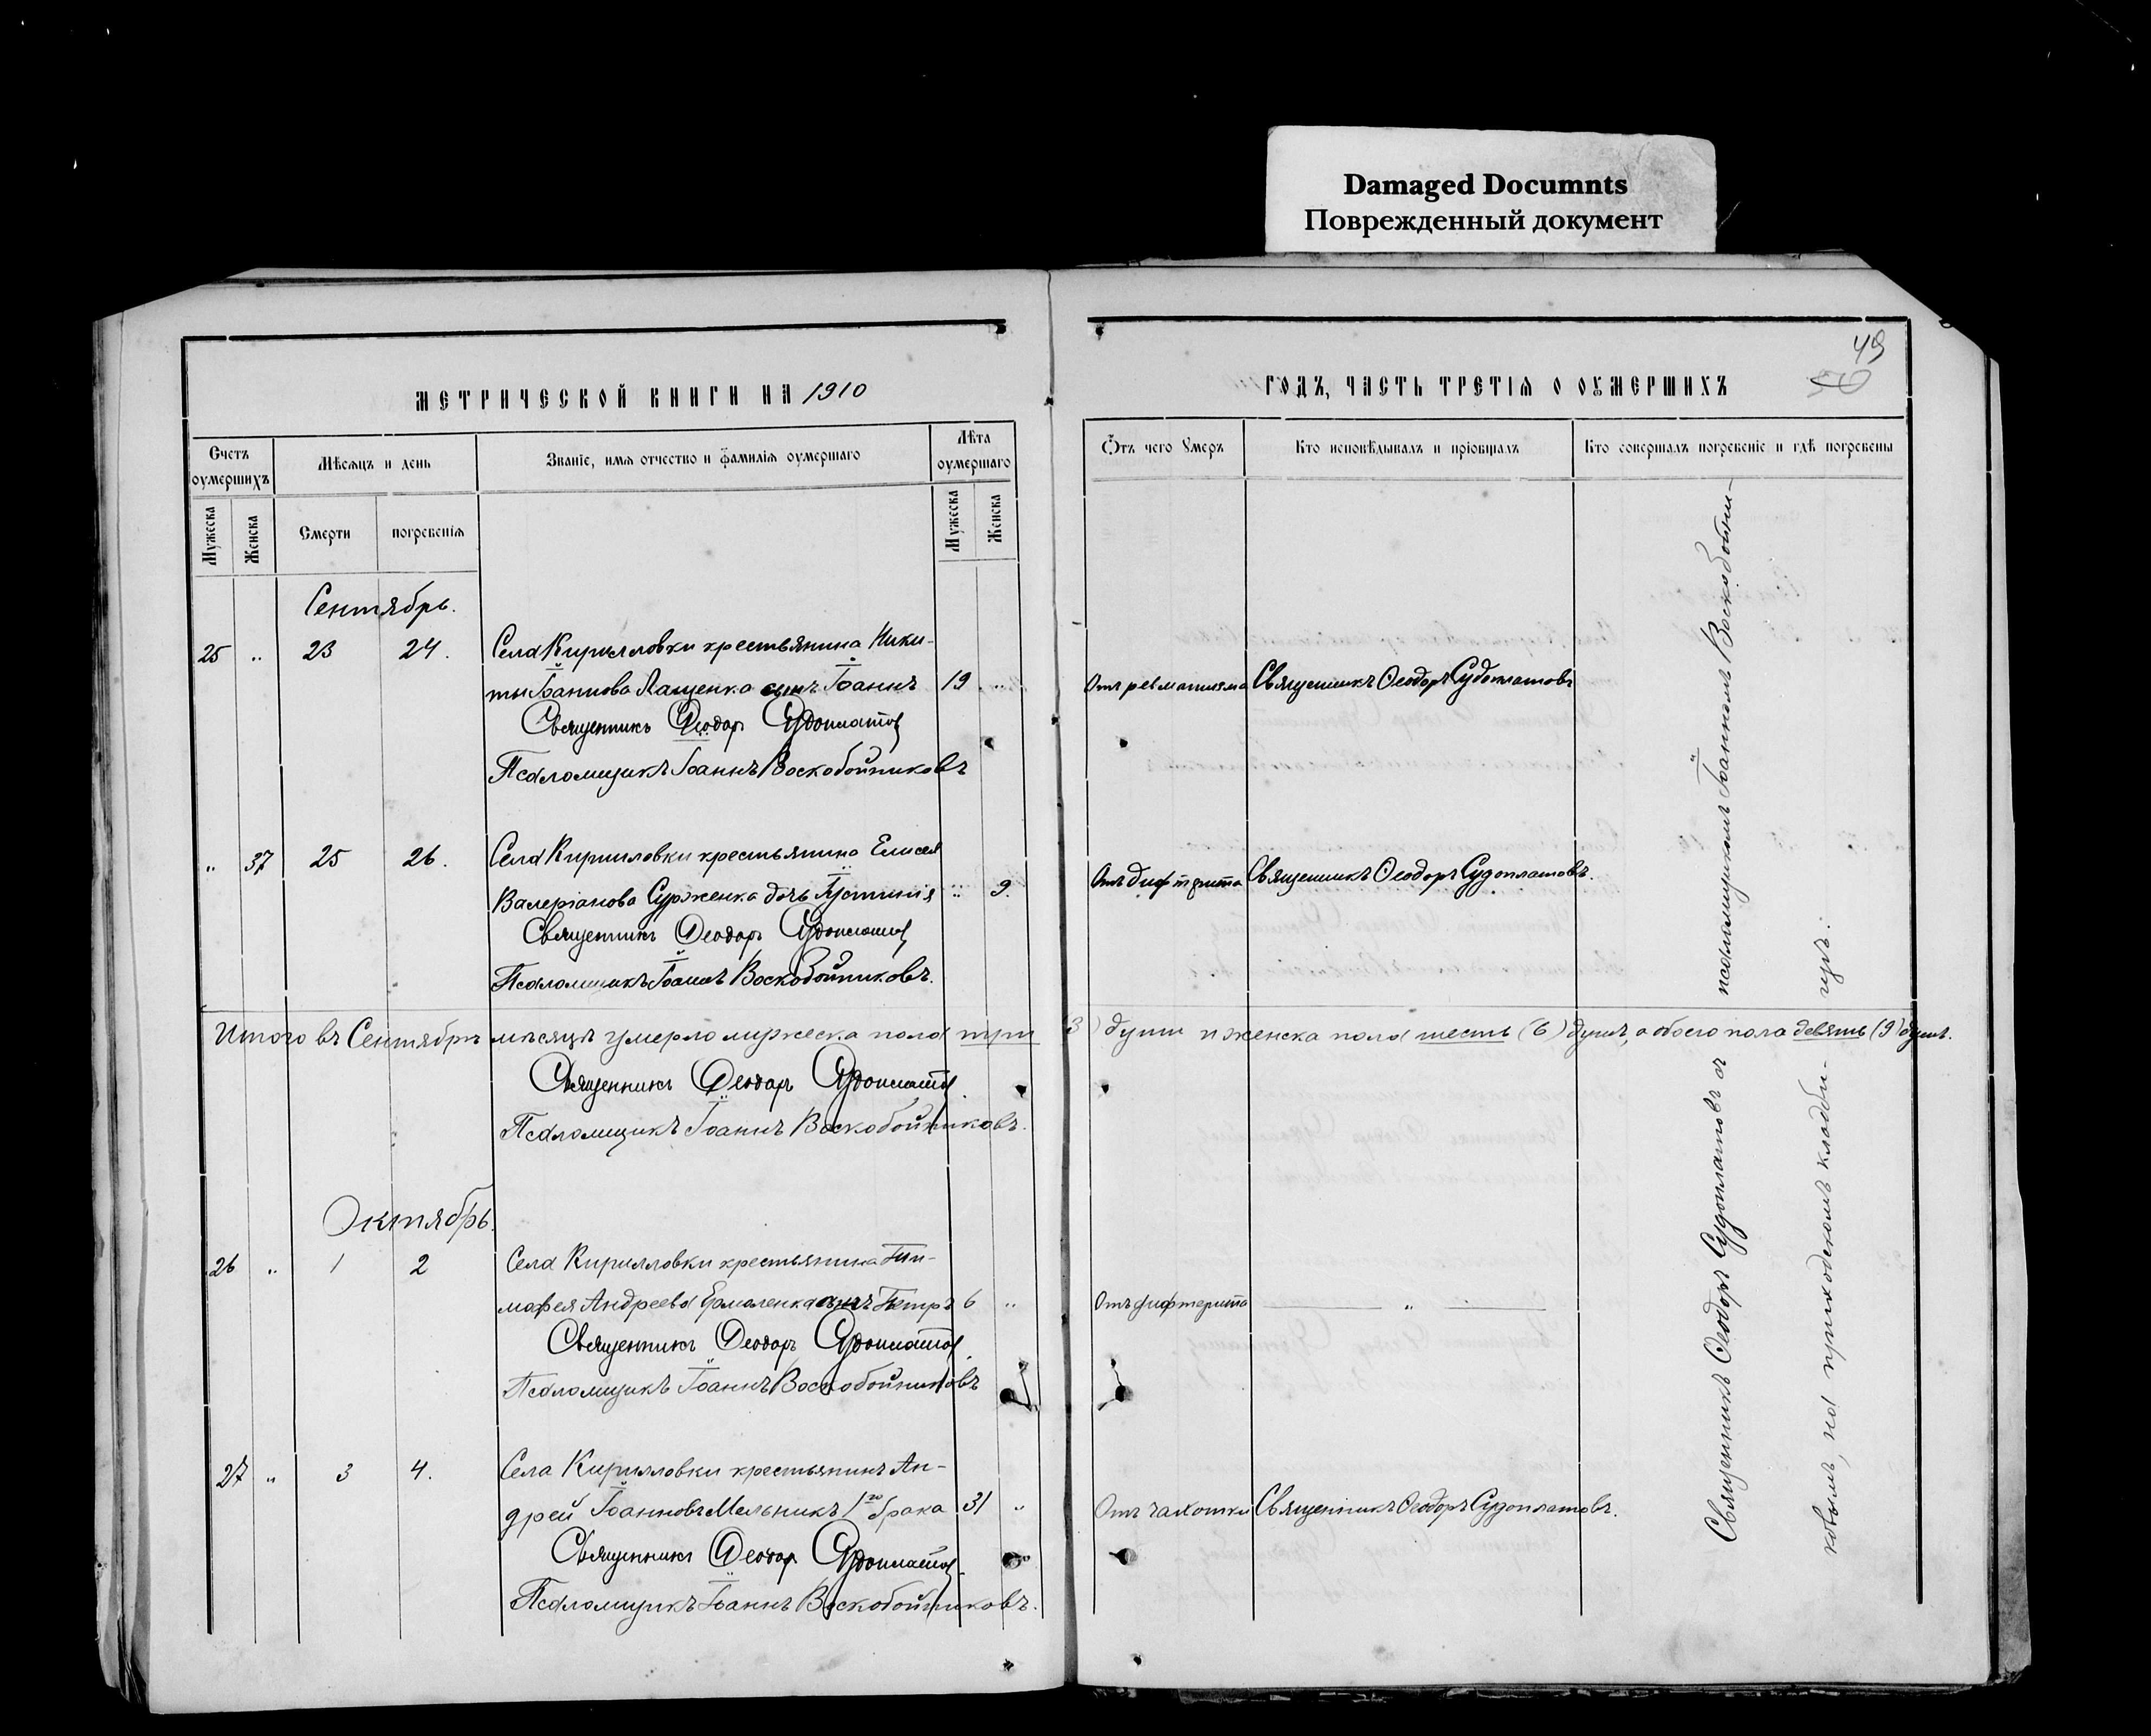 Damaged Documnts
Поврежденный документ
49
МЕТРИЧЕСКОЙ КНИГИ НА 1910
ГОДЪ, ЧАСТЬ ТРЕТІЯ О ОУМЕРШИХЪ
Счетъ оумершихъ
Мѣсяцъ и день
Званіе, имя отчество и фамилія оумершаго
Лѣта оумершаго
Отъ чего умеръ
Кто исповѣдывалъ и пріобщалъ
Кто совершалъ погребеніе и гдѣ погребены
Мужеска
Женска
Смерти
погребенія
Мужеска
Женска
Сентябрь.
25 " 23 24. Села Кирилловки крестьянина Ники-
ты Іоаннова Лащенка сынъ Іоаннъ 19 " Отъ ревматизма Священникъ Ѳеодоръ Судоплатовъ
Священникъ Ѳеодоръ Судоплатов
Псаломщикъ Іоаннъ Воскобойниковъ
" 37 25 26. Села Кирилловки крестьянина Елисея
Валеріанова Сурженка дочь Іустинія " 9. Отъ дифтерита Священникъ Ѳеодоръ Судоплатовъ.
Священникъ Ѳеодоръ Судоплатов
Псаломщикъ Іоаннъ Воскобойниковъ.
Итого въ Сентябрѣ мѣсяцѣ умерло мужеска пола три (3) души и женска пола шесть (6) душъ, а обоего пола девять (9) душъ.
Священникъ Ѳеодоръ Судоплатов
Псаломщикъ Іоаннъ Воскобойниковъ.
Октябрь.
26 " 1 2 Села Кирилловки крестьянина Ти-
мофея Андреева Ермоленка сынъ Петръ 6 " Отъ дифтерита "
Священникъ Ѳеодоръ Судоплатов
Псаломщикъ Іоаннъ Воскобойниковъ
27 " 3 4. Села Кирилловки крестьянинъ Ан-
дрей Іоанновъ Мельникъ 1го брака 31 " Отъ чахотки Священникъ Ѳеодоръ Судоплатовъ.
Священникъ Ѳеодоръ Судоплатов
Псаломщикъ Іоаннъ Воскобойниковъ.
Священникъ Ѳеодоръ Судоплатовъ съ псаломщикомъ Іоанномъ Воскобойни-
ковымъ, на приходскомъ кладби-
щѣ.